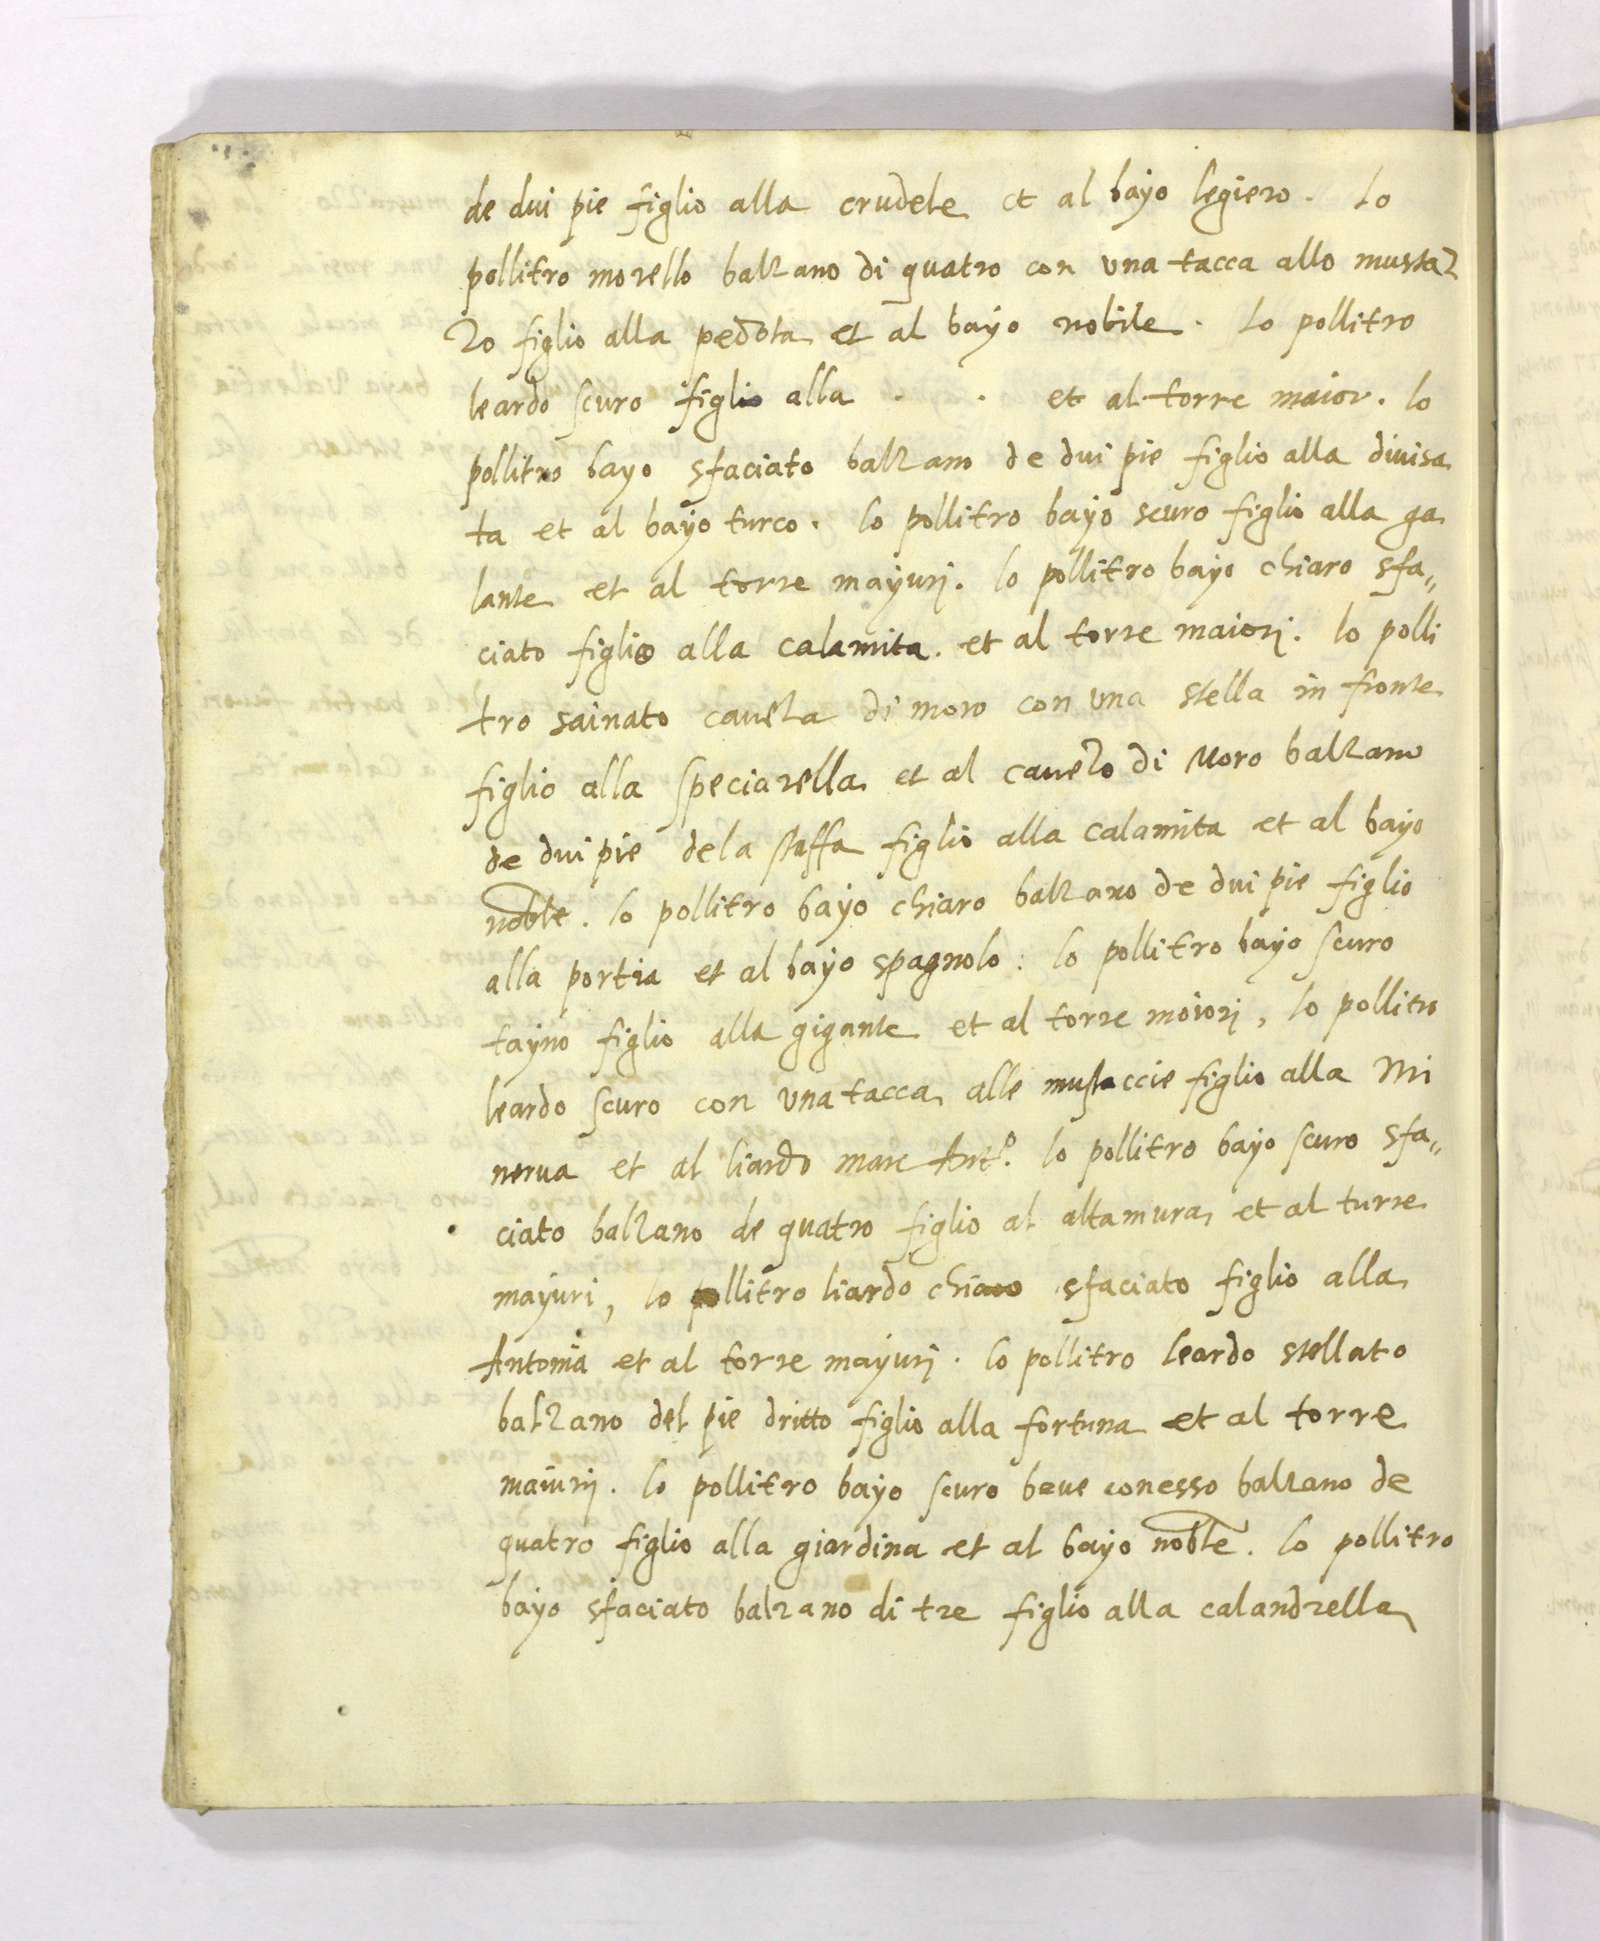 de dui pie figlio alla crudele et al bayo legiero. Lo
pollitro morello balzano di quatro con una tacca allo mustaz
zo figlio alla pedota et al bayo nobile. Lo pollitro
leardo scuro figlio alla . . et al torre maior. lo
pollitro bayo sfaciato balzano de dui pie figlio alla diuisa
ta et al bayo turco. lo pollitro bayo scuro figlio alla ga
lante et al torre mayurj. lo pollitro bayo chiaro sfa„
ciato figlio alla calamita. et al torre maiorj. lo polli
tro sainato caueza di moro con una stella in fronte
figlio alla speciarella et al cauezo di Moro balzano
de dui pie dela staffa figlio alla calamita et al bayo
noble. lo pollitro bayo chiaro balzano de dui pie figlio
alla portia et al bayo spagnolo: lo pollitro bayo scuro
tayno figlio alla gigante et al torre moiorj, lo pollitro
leardo scuro con una tacca alle mustaccie figlio alla Mi
nerua et al liardo marc Ant.º lo pollitro bayo scuro sfa„
ciato balzano de quatro figlio al altamura et al turre
mayuri, lo pollitro liardo chiaro sfaciato figlio alla
Antonia et al torre mayurj. lo pollitro leardo stellato
balzano del pie dritto figlio alla fortuna et al torre
maiurj. lo pollitro bayo scuro beue conesso balzano de
quatro figlio alla giardina et al bayo noble. lo pollitro
bayo sfaciato balzano di tre figlio alla calandrella